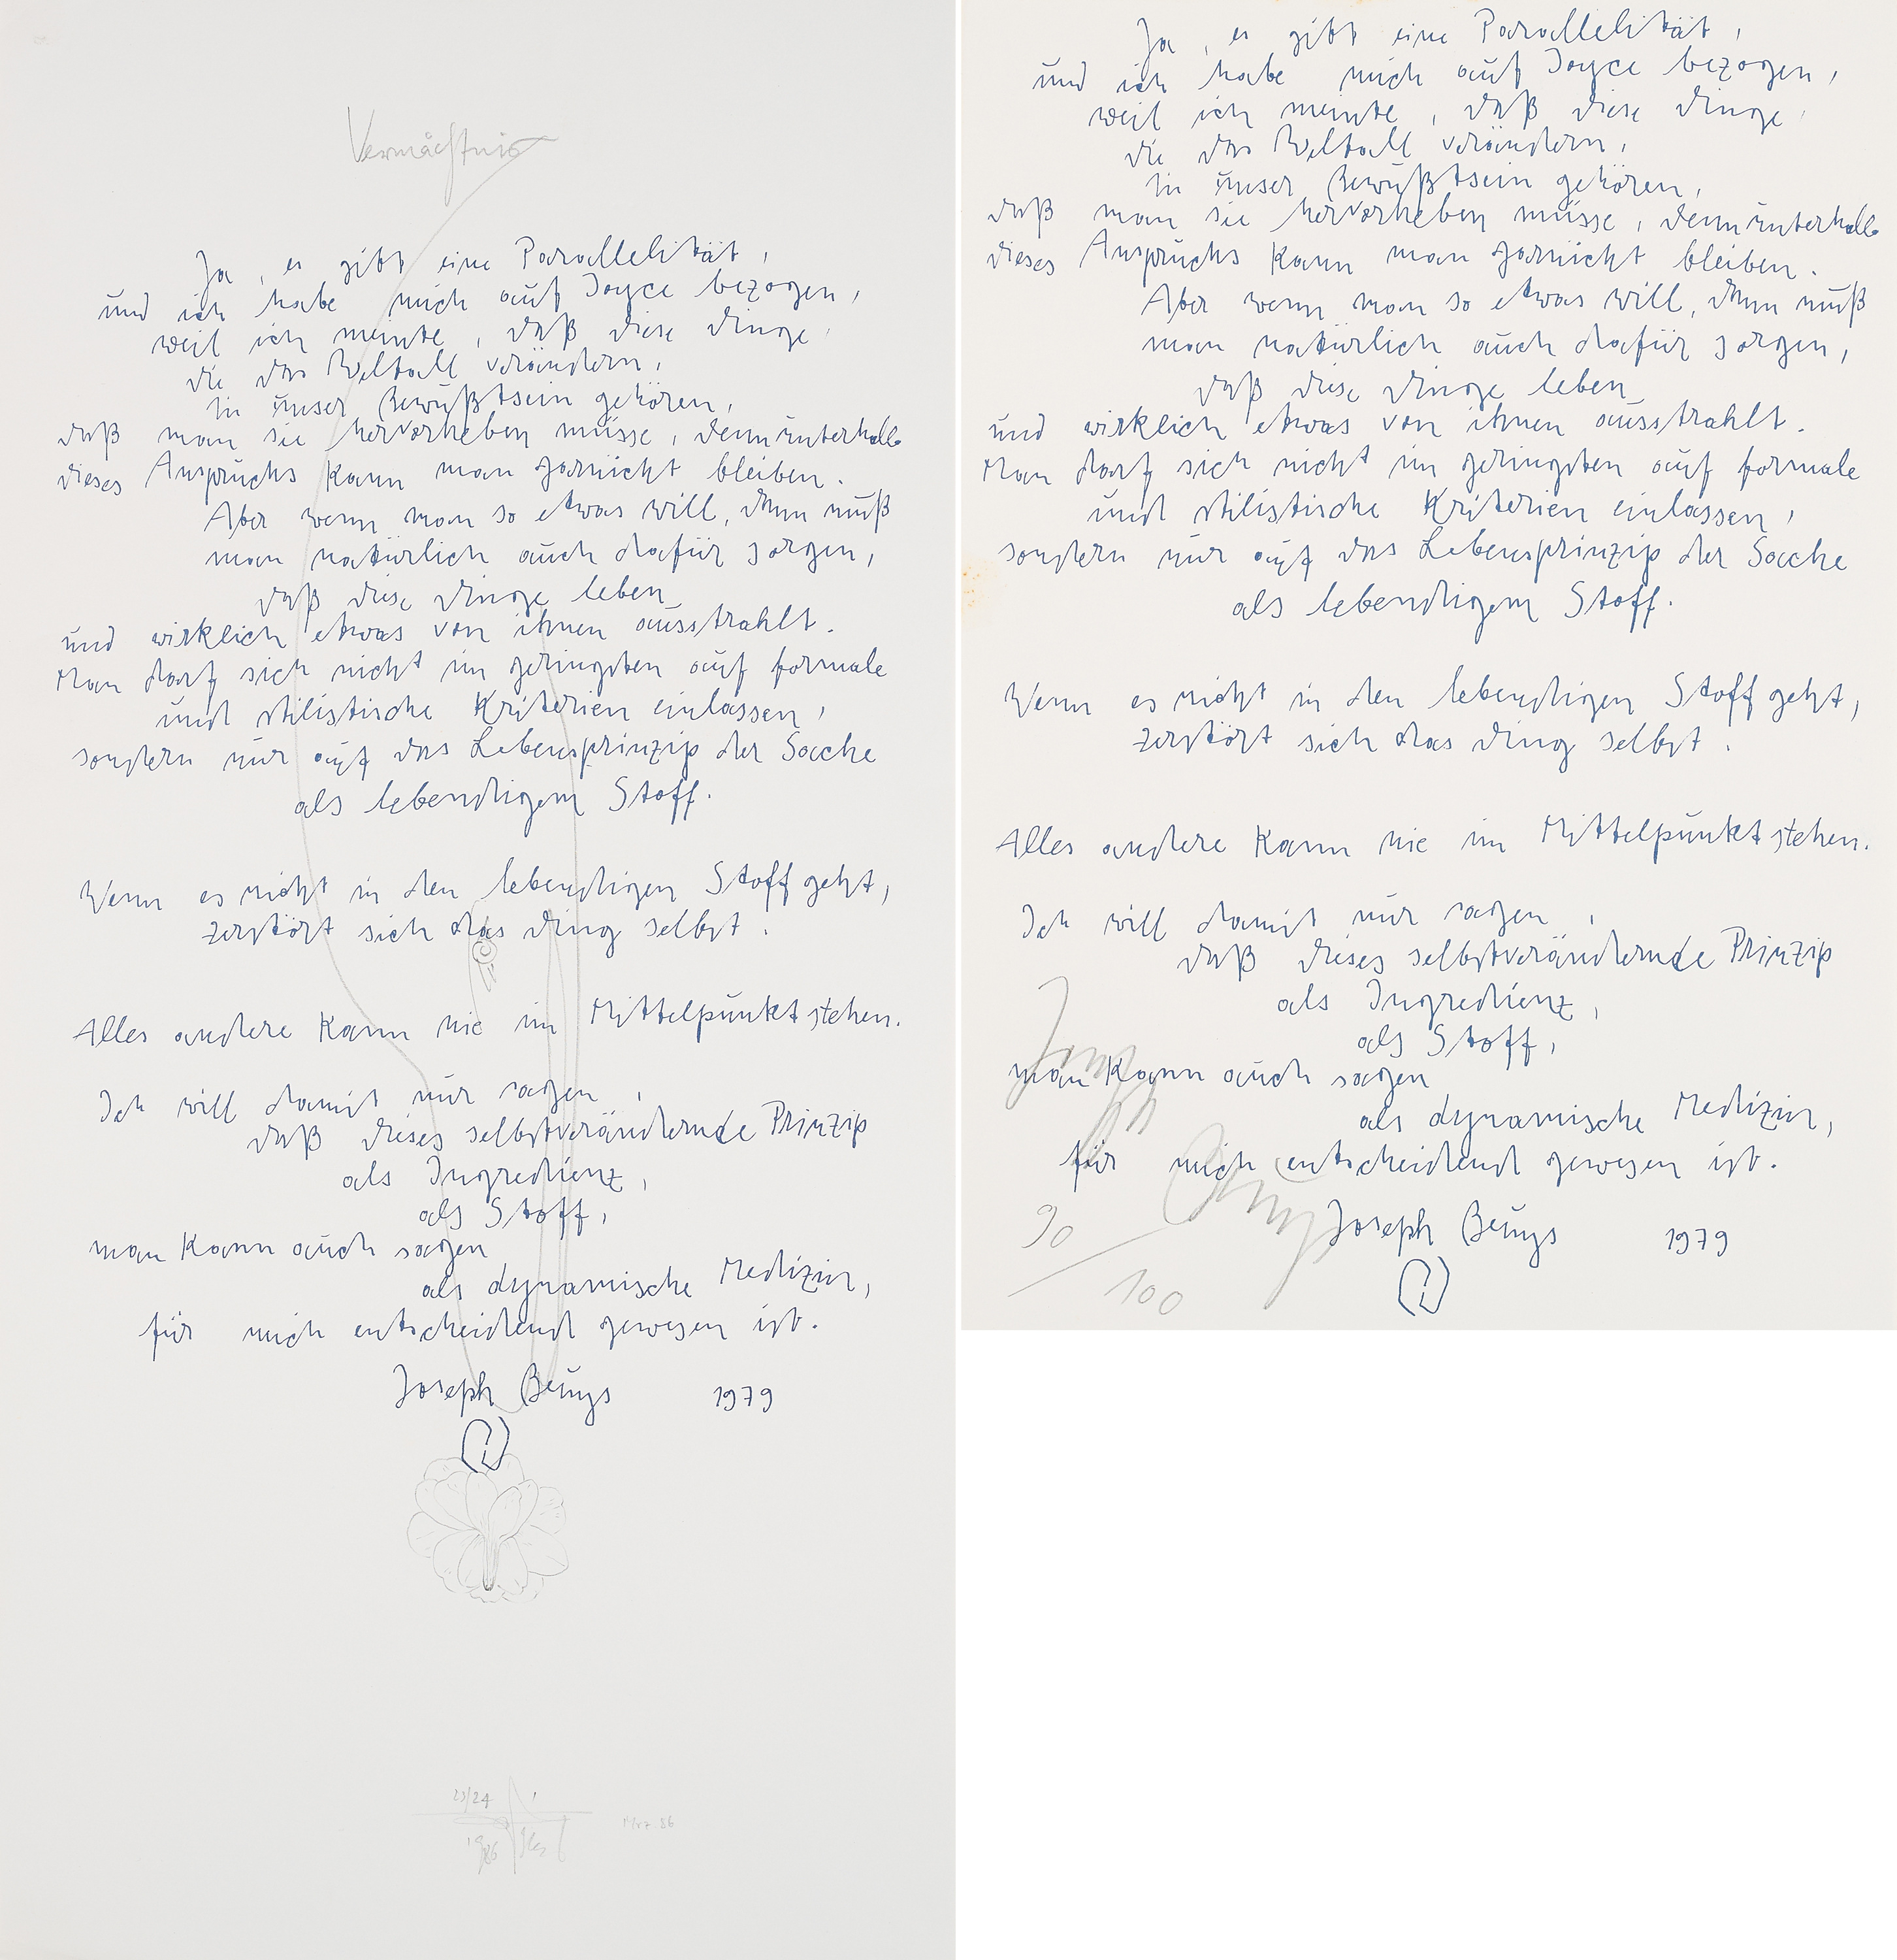 Vermächtnis
Ja, es gibt eine Parallelität,
und ich habe mich auf Joyce bezogen,
weil ich meinte, daß diese Dinge,
die das Weltall verändern,
in unser Bewußtsein gehören,
daß man sie hervorheben müsse, denn unterhalb
dieses Anspruchs kann man garnicht bleiben.
Aber wenn man so etwas will, dann muß
man natürlich auch dafür sorgen,
daß diese Dinge leben
und wirklich etwas von ihnen ausstrahlt.
Man darf sich nicht im geringsten auf formale
und stilistische Kriterien einlassen,
sondern nur auf das Lebensprinzip der Sache
als lebendigem Stoff.
Wenn es nicht in den lebendigen Stoff geht,
zerstört sich das Ding selbst.
Alles andere kann nie im Mittelpunkt stehen.
Ich will damit nur sagen,
daß dieses selbstverändernde Prinzip
als Ingredienz,
als Stoff,
man kann auch sagen
als dynamische Medizin,
für mich entscheidend gewesen ist.
Joseph Beuys 1979
23/24
1986
März 86
Ja, es gibt eine Parallelität,
und ich habe mich auf Joyce bezogen,
weil ich meinte, daß diese Dinge,
die das Weltall verändern,
in unser Bewußtsein gehören,
daß man sie hervorheben müsse, denn unterhalb
dieses Anspruchs kann man garnicht bleiben.
Aber wenn man so etwas will, dann muß
man natürlich auch dafür sorgen,
daß diese Dinge leben
und wirklich etwas von ihnen ausstrahlt.
Man darf sich nicht im geringsten auf formale
und stilistische Kriterien einlassen,
sondern nur auf das Lebensprinzip der Sache
als lebendigem Stoff.
Wenn es nicht in den lebendigen Stoff geht,
zerstört sich das Ding selbst.
Alles andere kann nie im Mittelpunkt stehen.
Ich will damit nur sagen,
daß dieses selbstverändernde Prinzip
als Ingredienz,
als Stoff,
man kann auch sagen
als dynamische Medizin,
für mich entscheidend gewesen ist.
Joseph Beuys
Joseph Beuys 1979
90/100